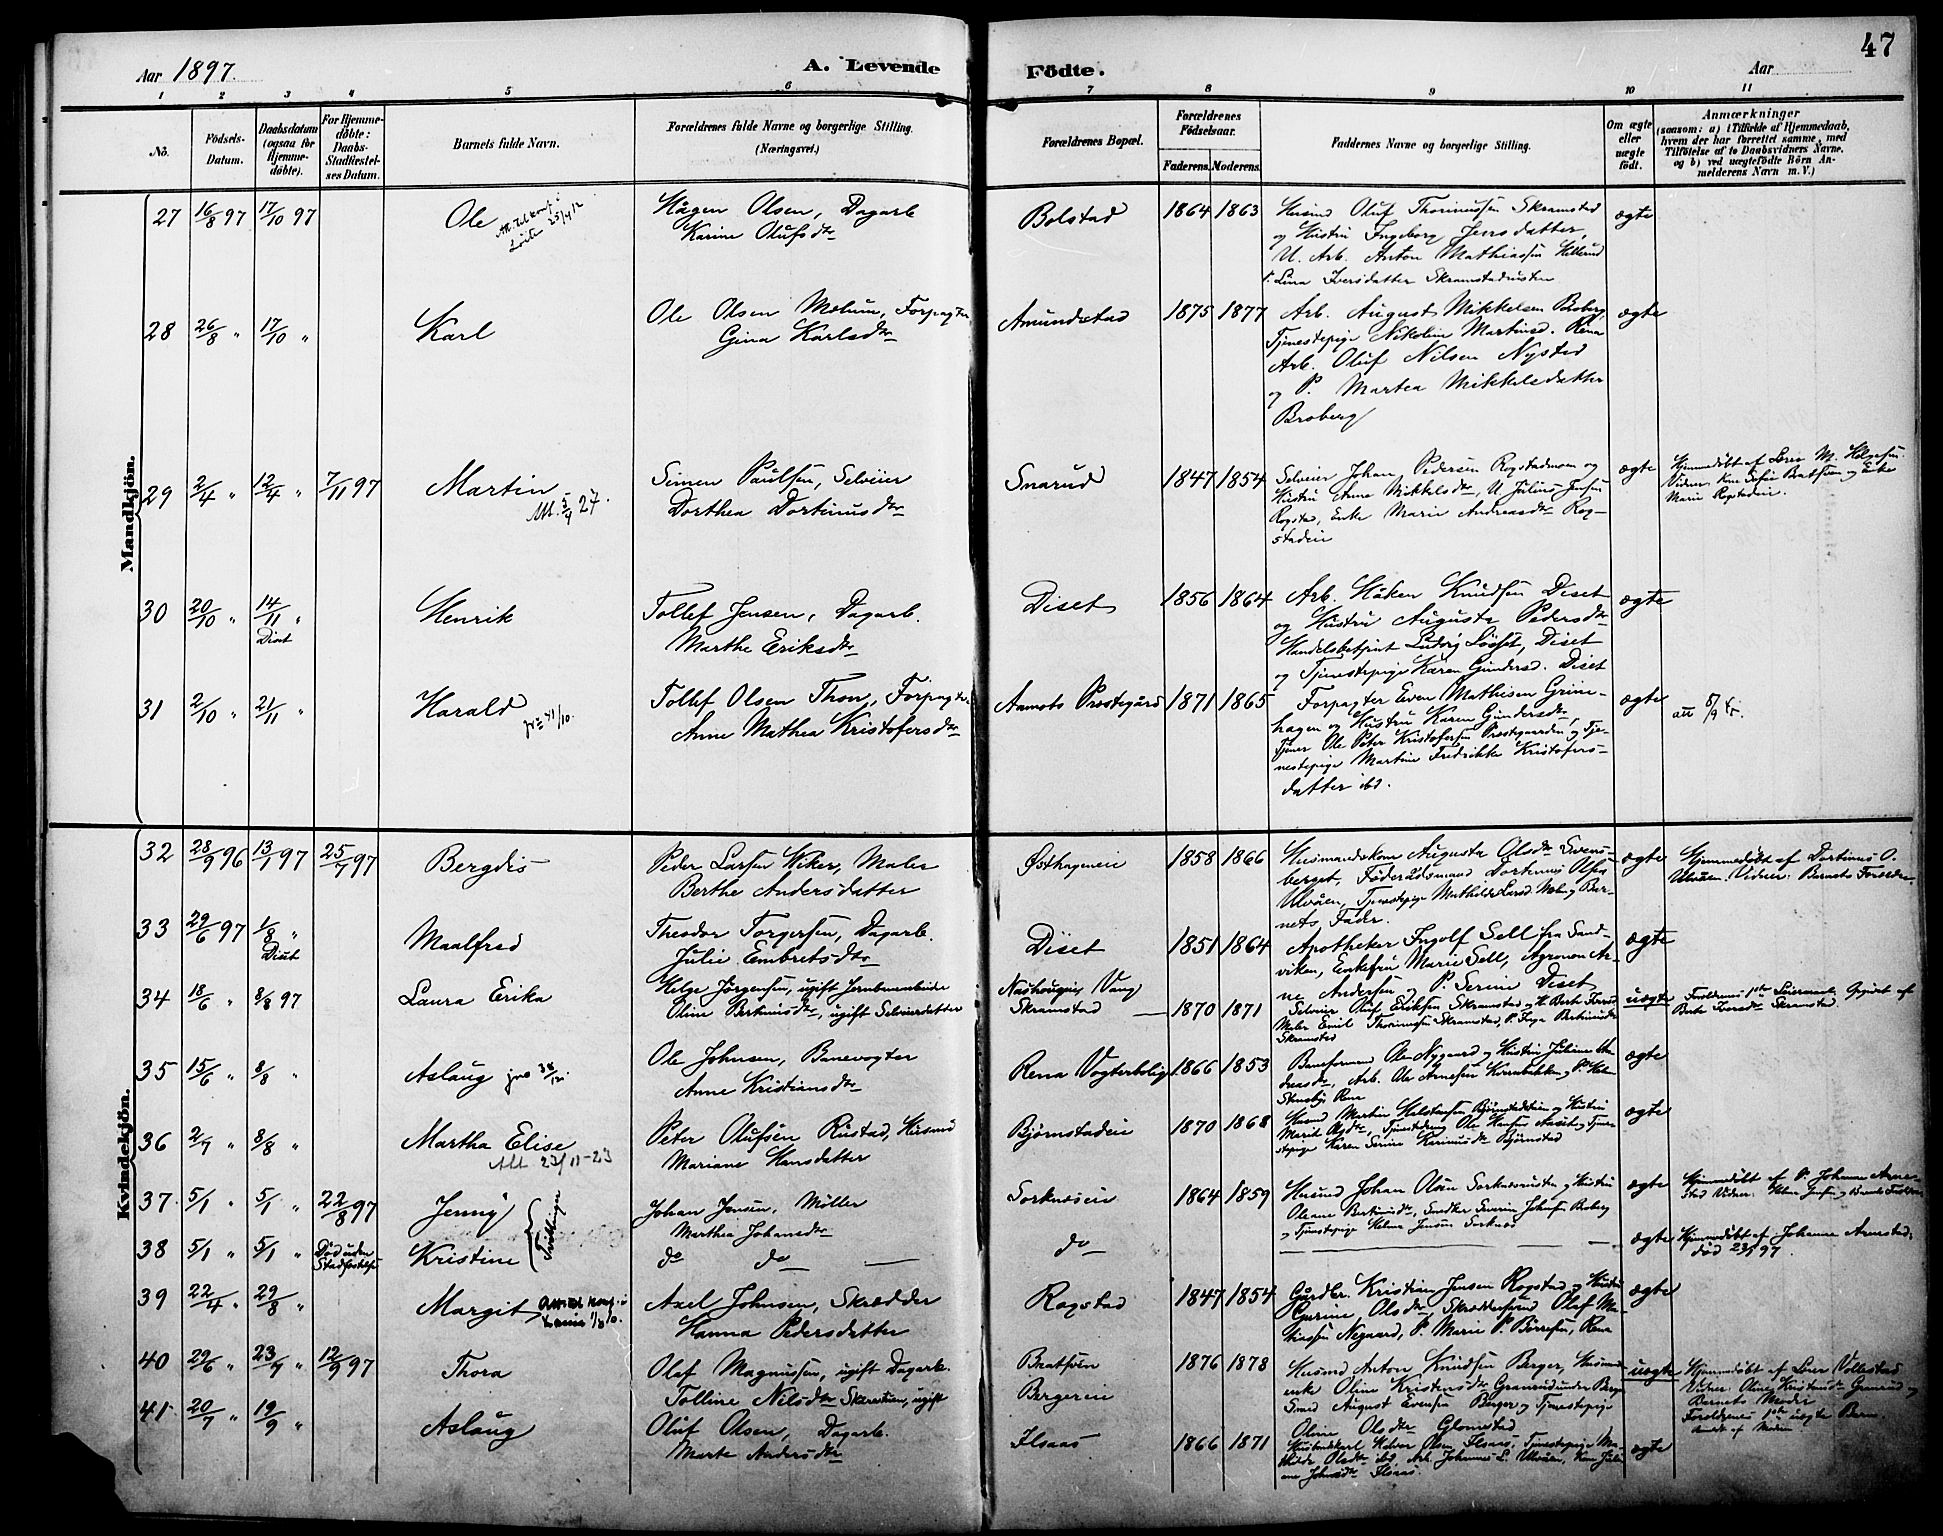 Aar 1897.
A. Levende
Födte.
Aar
47
1 2 3 4 5 6 7 8 9 10 11
No.
Födsels-
Datum.
Daabsdatum
(ogsaa for
Hjemme-
døbte).
For Hjemme-
døbte:
Daabs-
Stadfæstel-
ses Datum.
Barnets fulde Navn.
Forældrenes fulde Navne og borgerlige Stilling.
(Næringsvei.)
Forældrenes Bopæl.
Forældrenes
Fødselsaar.
Faderens. Moderens.
Faddernes Navne og borgerlige Stilling.
Om ægte
eller
uægte
født.
Anmærkninger
(saasom: a) i Tilfælde af Hjemmedaab,
hvem der har forrettet samme, med
Tilføielse af to Daabsvidners Navne,
og b) ved uægtefødte Børn An-
melderens Navn m. V.)
Mandkjön.
27 16/8 97 17/10 97 Ole
Hågen Olsen, Dagarb.
Karine Olufsdtr
Bolstad 1864 1863
Husmd Oluf Thorinussen Skramstad
og Hustru Ingeborg Jensdatter,
U. Arb. Anton Mathiassen Hillerud
P. Lina Iversdatter Skramstad
ægte
28 26/8 " 17/10 " Karl
Ole Olsen Mælum, Forpagter
Gina Karlsdtr
Amundstad 1875 1877
Arb. August Mikkelsen Broberg,
Tjenestepige Nikoline Martinsd. Rena
Arb. Oluf Nilsen Nysted
og P. Martea Mikkelsdatter
Broberg
ægte
29 2/4 " 12/4 " 7/11 97 Martin
Att. 5/4 27.
Simen Paulsen, Selveier
Dorthea Dortinusdtr
Snarud 1847 1854
Selveier Johan Pedersen Rogstadmoen og
Hustru Anne Mikkelsdtr, U. Julius Jensen
Rogstad, Enke Marie Andreasdtr Rog-
stadeie
ægte
Hjemmedøbt af Lærer M. Helgesen
Vidner: Kone Sofie Bratsveen og Enke
Marie Rogstadeie.
30 20/10 " 14/11 " Henrik
Diset
Tollef Jensen, Dagarb.
Marthe Eriksdtr
Diset 1856 1864
Arb. Håken Knudsen Diset
og Hustru Augusta Pedersdtr
Handelsbetjent Ludvig Løset, Diset
og Tjenestepige Karen Gundersd. Diset
ægte
31 2/10 " 21/11 " Harald
Tollef Olsen Thon, Forpagter
Anne Mathea Kristofersdtr
Aamots Præstegård 1871 1865
Forpagter Even Mathisen Grine-
hagen og Hustru Karen Gundersdtr,
Tjener Ole Peter Kristofersen Præstgaarden og Tje-
nestepige Martine Fredrikke Kristofers-
datter ibd.
ægte
att 8/9
Kvindekjön.
32 28/9 96 13/1 97 25/7 97 Bergdis
Peder Larsen Viker, Maler
Berthe Andersdatter
Østhageneie 1858 1866
Husmandskone Augusta Olsdtr Svens-
berget, Føderaadsmand Dortinus Olsen
Ulvåen, Tjenestepige Mathilde Larsd. Moln, Bar-
nets Fader.
ægte
Hjemmedøbt af Dortinus O.
Ulvåen. Vidner: Barnets Forældre.
33 29/6 97 1/8 " Maalfred
Diset
Theodor Torgersen, Dagarb.
Julie Embretsdtr
Diset 1851 1864
Apotheker Ingolf Sell fra Sand-
viken, Enkefru Marie Sell, Agronom Ar-
ne Andersen og P. Serine Diset
ægte
34 18/6 " 8/8 97 Laura Erika
Helge Jørgensen, ugift Jernbanearbeider
Oline Bertinusdtr, ugift Selveierdatter
Vang
Skramstad 1870 1871
Selveier Oluf Eriksen Skramstad og H. Berte Iversd.
Maler Emil Thorinussen Skramstad, P. Inga Bertinusdtr
Skramstad
uægte
Forældrenes 1ste Leiermaal. Opgivet af
Berte Iversdtr Skramstad.
35 15/6 " 8/8 " Aslaug
Ole Johnsen, Banevogter
Anne Kristiansdtr
Rena Vogterbolig 1866 1853
Baneformand Ole Nygaard og Hustru Juliane An-
dreasdtr, Arb. Ole Arnesen Kvernbekken, P. Helen
Stensby Rena
ægte
36 2/7 " 8/8 " Martha Elise
Att 23/11-23
Peter Olufsen Rustad, Husmd
Mariane Hansdatter
Bjørnstadeie 1870 1868
Husmd Martin Halstensen Bjørnstadeie og Hustru
Marit Olsdtr, Tjenestedreng Ole Hansen Aaset og Tjene-
stepige Karen Serine Karinusdtr Bjørnstad
ægte
37. 5/1 " 5/1 " 22/8 97 Jenny
Tvillinger
Johan Jensen, Møller
Marthea Johansdtr
Sorknæseie 1864 1859
Husmd Johan Olsen Sorknæs og Hustru
Oleane Bertinusdtr, Snedker Severin Johnsen Broberg
og Tjenestepige Helma Jensen Sorknæs
ægte
Hjemmedøbt af P. Johanne Arne-
stad. Vidner: Helma Jensen og Barnets Forældre
38 5/1 " 5/1 " Død uden
Stadfæstelse
Kristine
do do
do
ægte
Hjemmedøbt af Johanne Arnestad,
død 23/1 97.
39 22/4 " 29/8 " Margit
Axel Johnsen, Skrædder
Hanna Pedersdatter
Rogstad 1847 1854
Gårdbr. Kristian Jensen Rogstad og Hustru
Gurine Olsdtr, Skræddersvend Olaf Ma-
thiassen Negaard, P. Marie P. Børresen, Rena
ægte
40 29/6 " 23/7 " 12/9 97 Thora
Olaf Magnussen, ugift Dagarb.
Tolline Nilsdtr, ugift
Bratsveen
Bergereie 1876 1878
Husmd Anton Knudsen Berger, Husmd
enke Oline Kristensdtr Granrud under Berger
Smed August Evensen Berger og Tjenestepige
Oline Olsdtr Glomstad
uægte
Hjemmedøbt af Lærer Vollestad
Vidner: Oline Kristensdtr Granrud og
Barnets Moder
Forældrenes 1ste uægte Barn
41 20/7 " 19/9 " Aslaug
Oluf Olsen, Dagarb.
Marte Andersdtr
Ilsaas 1866 1871
Halvor Olsen Ilsaas, Tjenestepige Ma-
thilde Olsdtr ibd, Arb. Johannes L. Ulvåen, Kone Juli-
ane Johnsdtr Ilsaas.
ægte